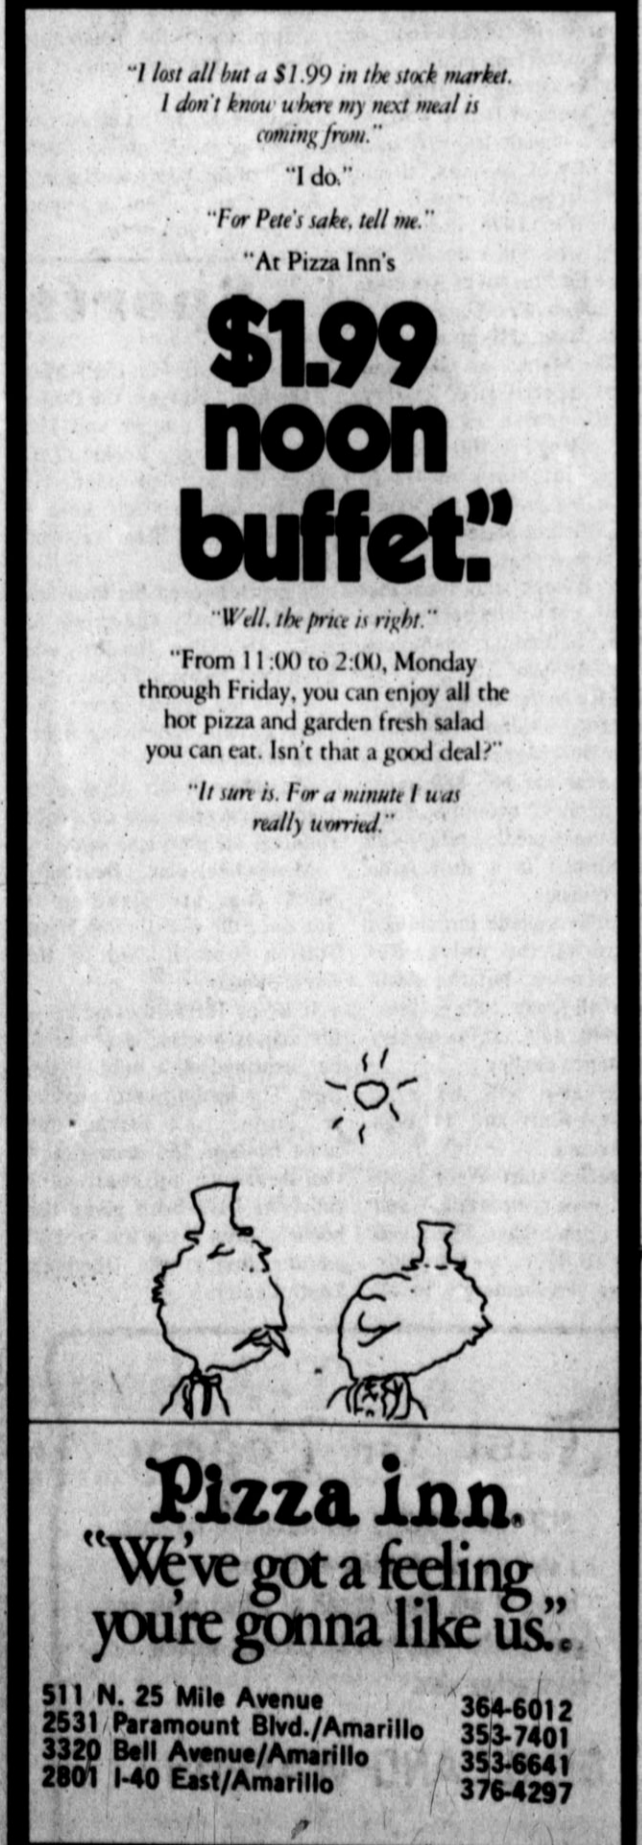 "I lost all but a $1.99 in the stock market.
I don't know where my next meal is
coming from."
"I do."
"For Pete's sake, tell me."
"At Pizza Inn's
$1.99
noon
buffet."
"Well, the price is right."
"From 11:00 to 2:00, Monday
through Friday, you can enjoy all the
hot pizza and garden fresh salad
you can eat. Isn't that a good deal?"
"It sure is. For a minute I was
really worried."
Pizza inn.
"We've got a feeling
you're gonna like us."
511 N. 25 Mile Avenue 364-6012
2531 Paramount Blvd./Amarillo 353-7401
3320 Bell Avenue/Amarillo 353-6641
2801 I-40 East/Amarillo 376-4297